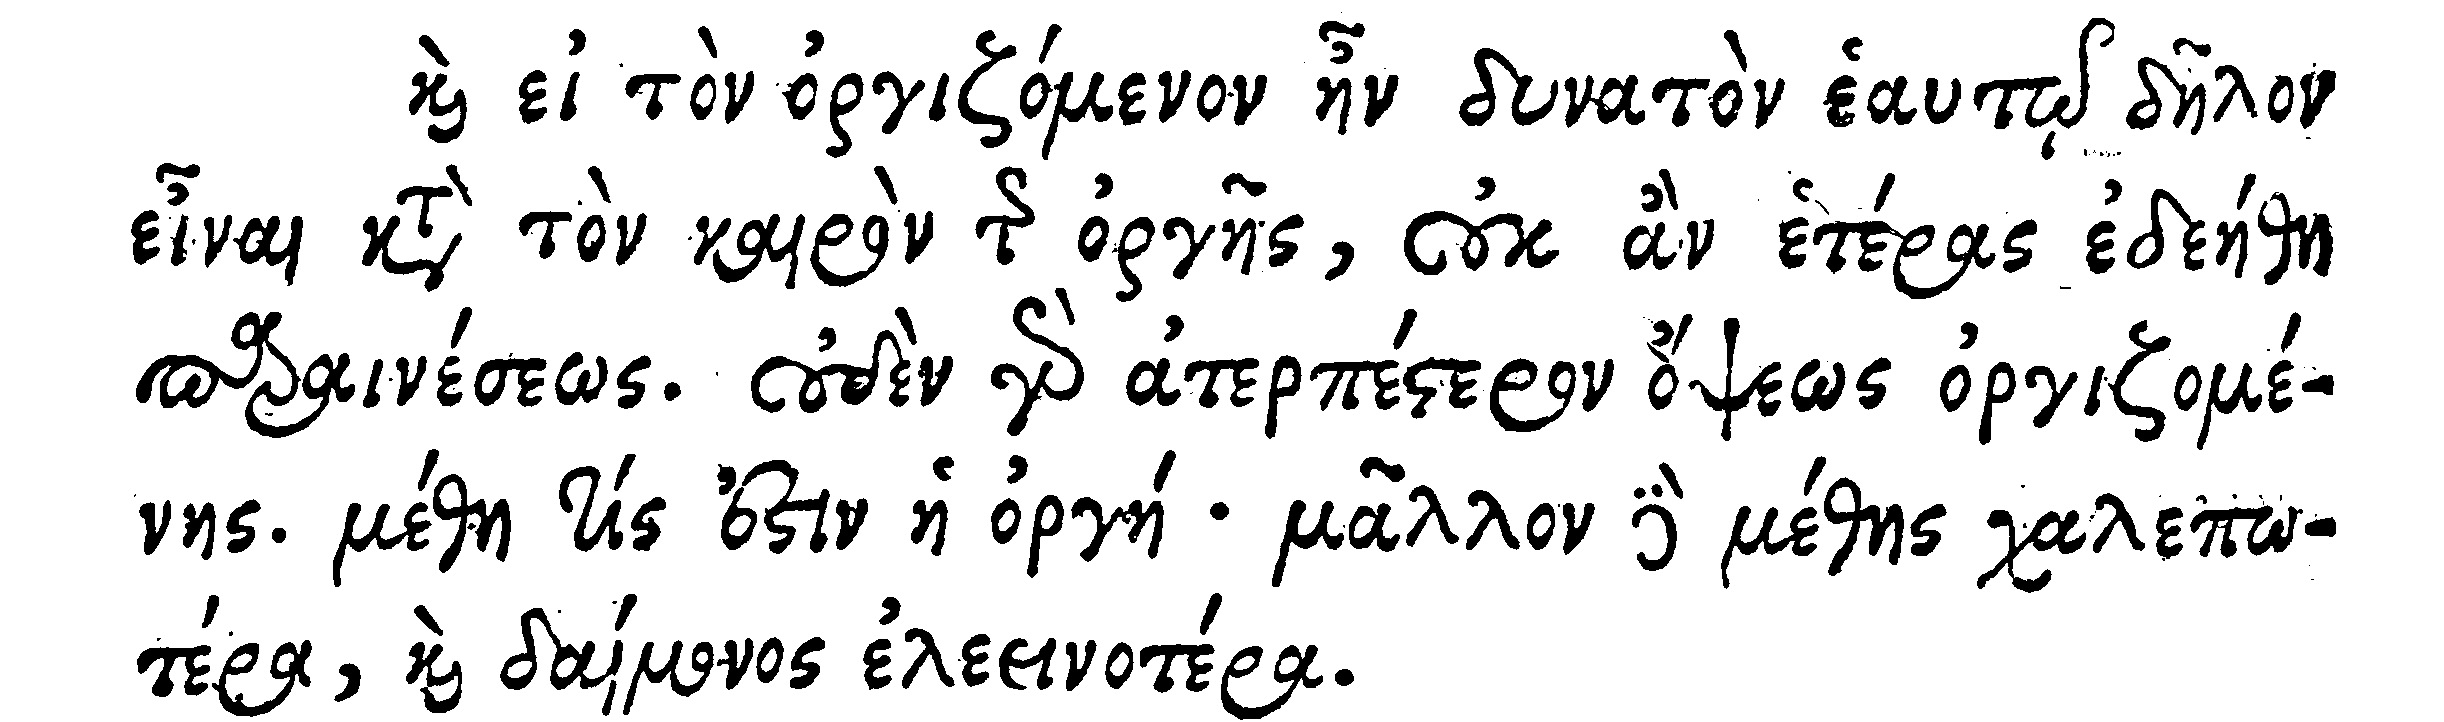 καὶ εἰ τὸν ὀργιζόμενον ἦν δυνατὸν ἑαυτῷ δῆλον
εἶναι κατὰ τὸν καιρὸν τῆς ὀργῆς, οὐκ ἂν ἑτέρας ἐδεήθη
παραινέσεως. οὐδὲν γὰρ ἀτερπέστερον ὄψεως ὀργιζομέ-
νης. μέθη τίς ἐστιν ἡ ὀργή· μᾶλλον δὲ μέθης χαλεπω-
τέρα, καὶ δαίμονος ἐλεεινοτέρα.